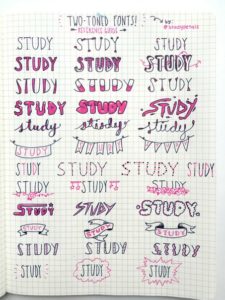 TWO-TONED FONTS!
REFERENCE GUIDE
by:
STUDY STUDY STUDY
STUDY STUDY STUDY
STUDY STUDY STUDY
STUDY STUDY STUDY
study study study
STUDY STUDY STUDY
STUDY STUDY STUDY STUDY
STUDY STUDY STUDY
STUDY STUDY STUDY
STUDY STUDY STUDY
STUDY STUDY STUDY
STUDY STUDY STUDY